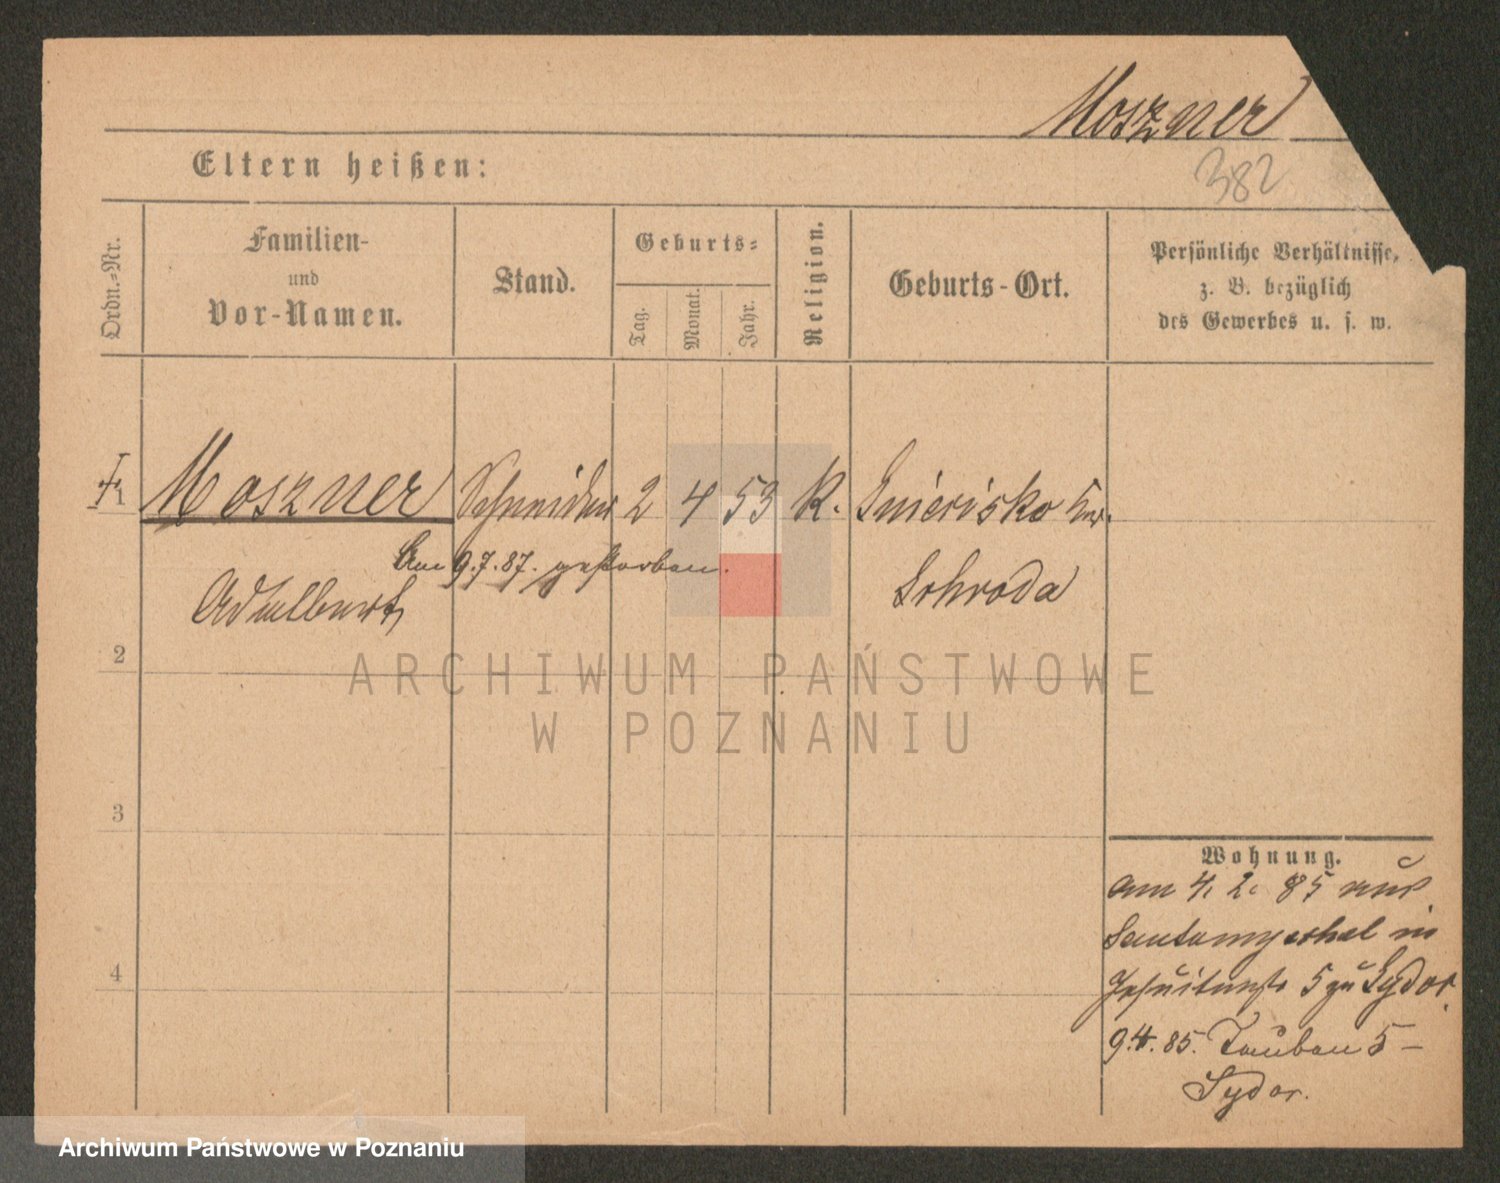 Moszner
382
Eltern heißen:
Ordn.-Nr.
Familien-
und
Vor-Namen.
Stand.
Geburts-
Tag.
Monat.
Jahr.
Religion.
Geburts-Ort.
Persönliche Verhältnisse,
z. B. bezüglich
des Gewerbes u. s. w.
1 Moszner Schneider 2 4 53 K. Gnierisko Kr.
Am 9.7.87. gestorben.
Adalbert Schroda
2
3
4
ARCHIWUM PAŃSTWOWE
W POZNANIU
Wohnung.
am 4. 2. 85 aus
Santomyschel in
Jesuitenstr 5 zu Sydor.
9.4.85. Tauben 5 –
Sydor.
Archiwum Państwowe w Poznaniu